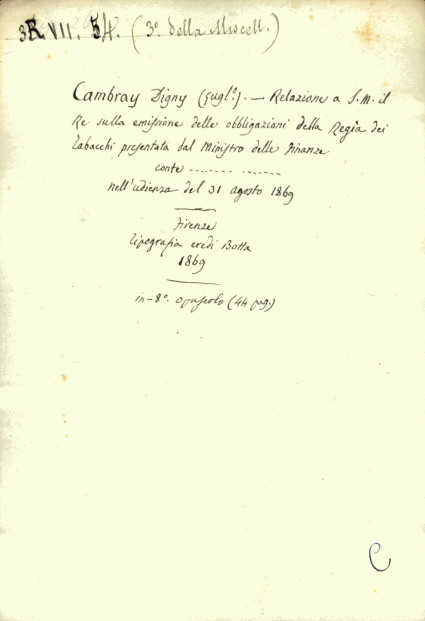 3R. VII. 54. (3º. della Miscell.)
Cambray Digny (Gugl.º). — Relazione a S. M. il
Re sulla emissione delle obbligazioni della Regìa dei
Tabacchi presentata dal Ministro delle Finanze
conte .....................
nell'udienza del 31 agosto 1869
Firenze
Tipografia eredi Botta
1869
in-8º. opuscolo (44 pag.)
C